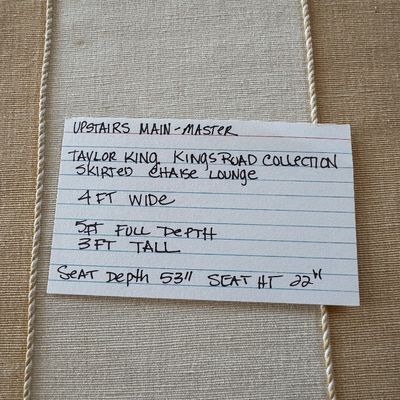 UPSTAIRS MAIN-MASTER
TAYLOR KING KINGS ROAD COLLECTION
SKIRTED CHAISE LOUNGE
4 FT WIDE
5 ft FULL DEPTH
3 FT TALL
SEAT DEPTH 53" SEAT HT 22"